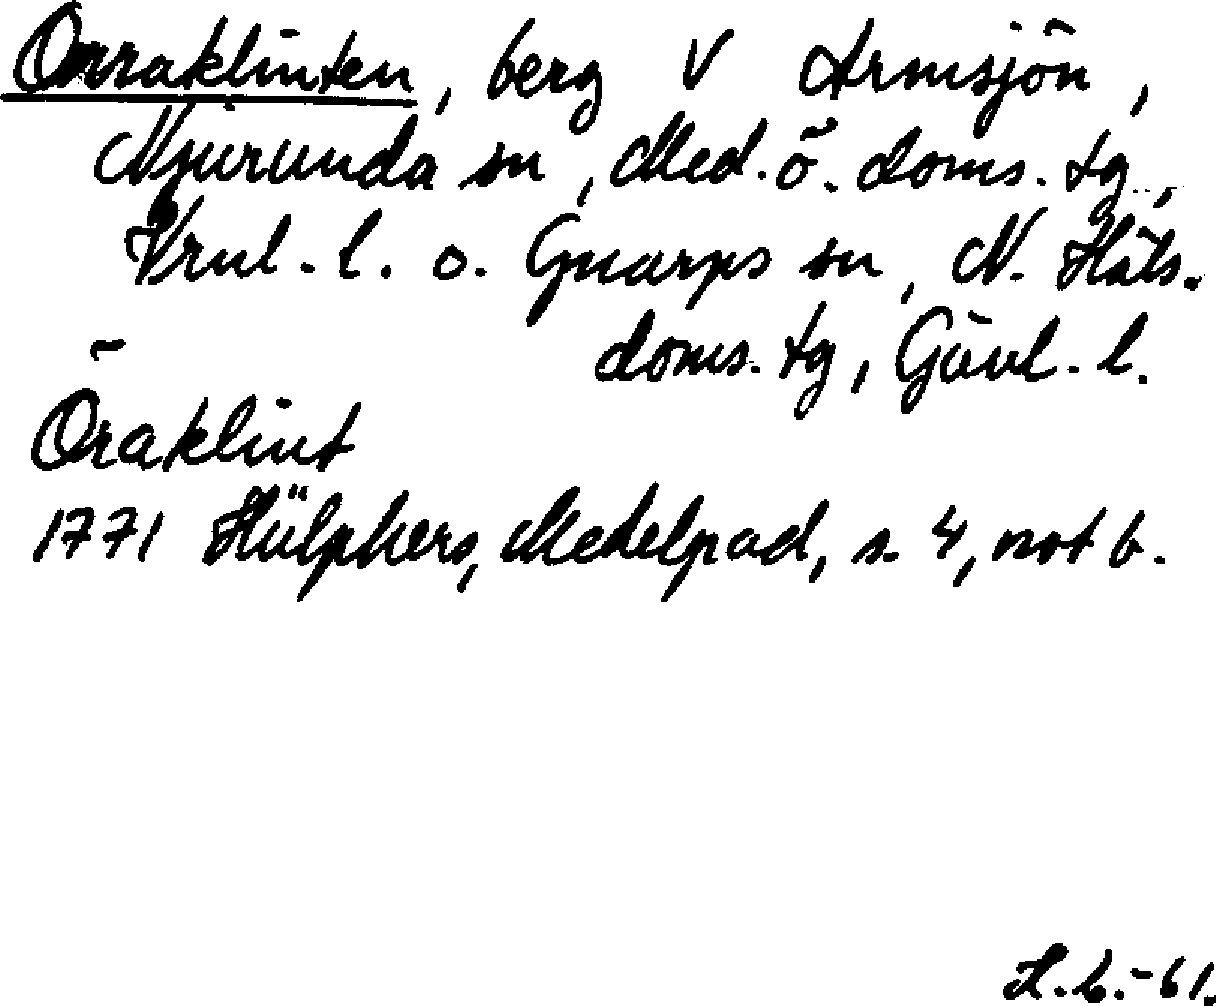 Orraklinten, berg V Armsjön,
Njurunda sn, Med. ö. doms. tg,
Vrnl. l. o. Gnarps sn, N. Häls.
doms. tg, Gävl. l.
Öraklint
1771 Hülphers, Medelpad, s. 4, not b.
L.b.-61.